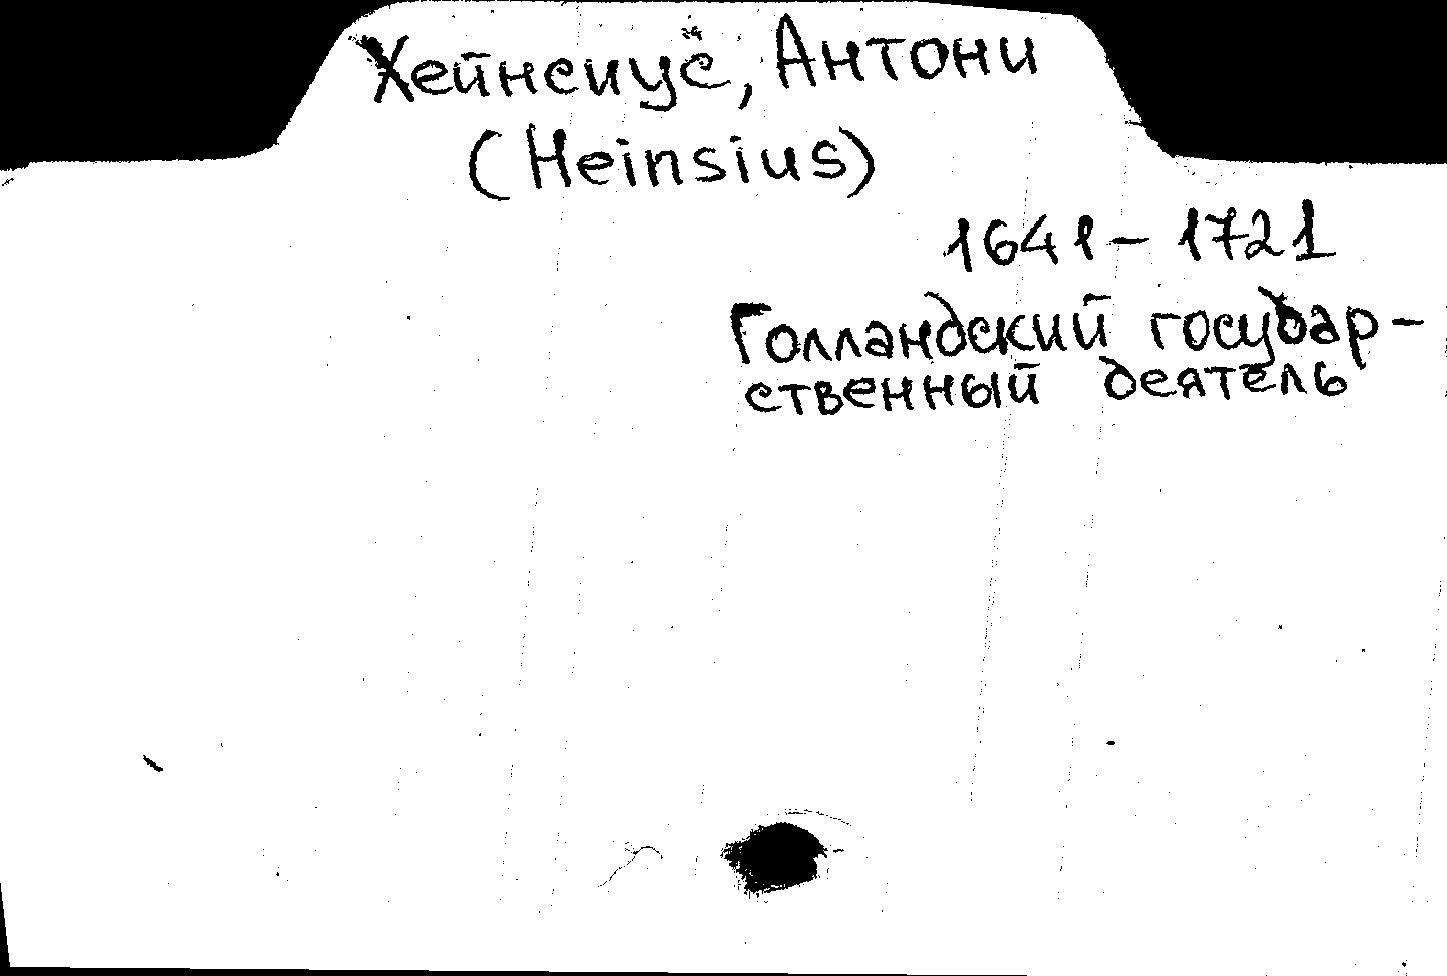 Хейнсиус, Антони
(Heinsius)
1641 - 1721
Голландский государ-
ственный деятель